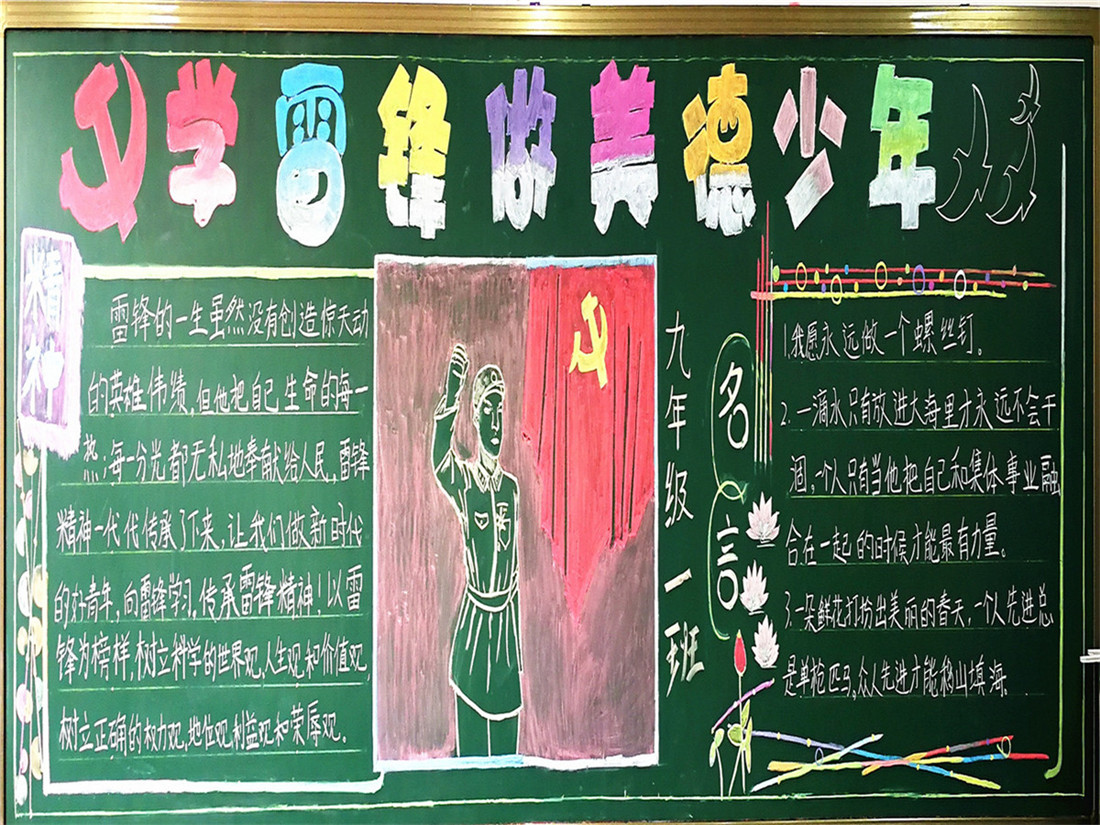 学雷锋做美德少年
精神
雷锋的一生虽然没有创造惊天动
的英雄伟绩,但他把自己生命的每一
热;每一分光都无私地奉献给人民,雷锋
精神一代代传承了下来,让我们做新时代
的好青年,向雷锋学习,传承雷锋精神!以雷
锋为榜样,树立科学的世界观,人生观和价值观,
树立正确的权力观,地位观,利益观和荣辱观。
九年级一班
名言
1.我愿永远做一个螺丝钉。
2.一滴水只有放进大海里才永远不会干
涸,一个人只有当他把自己和集体事业融
合在一起的时候才能最有力量。
3.一朵鲜花打扮出美丽的春天,一个人先进总
是单枪匹马,众人先进才能移山填海。